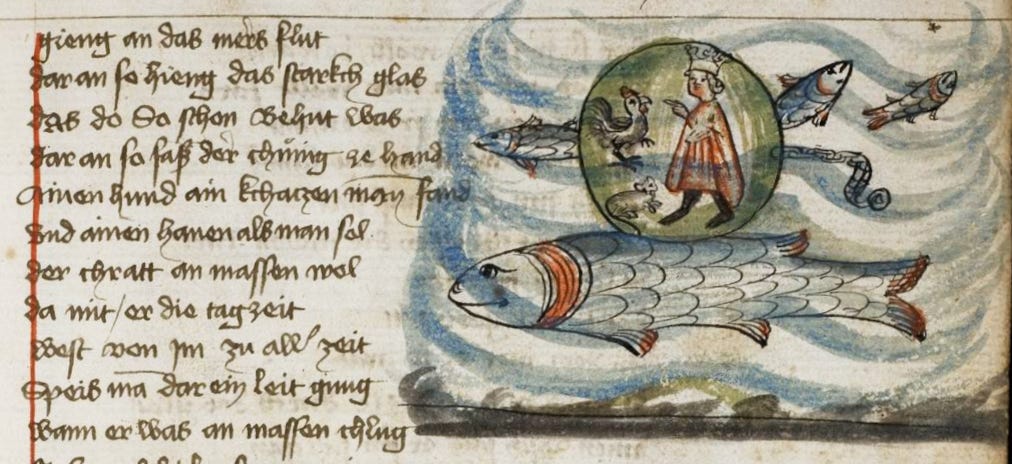 gieng an das mers flut
dar an so hieng das starkch glas
das do So schon Behut was
dar an so saß der chůnig ze hand
Ainen hund ain kchatzen man fand
Vnd ainen hanen als man sol
der chratt an massen wol
da mit / er die tagzeit
West von Im zu all zeit
Speis mā dar ein leit gnug
Wann er was an massen chlug